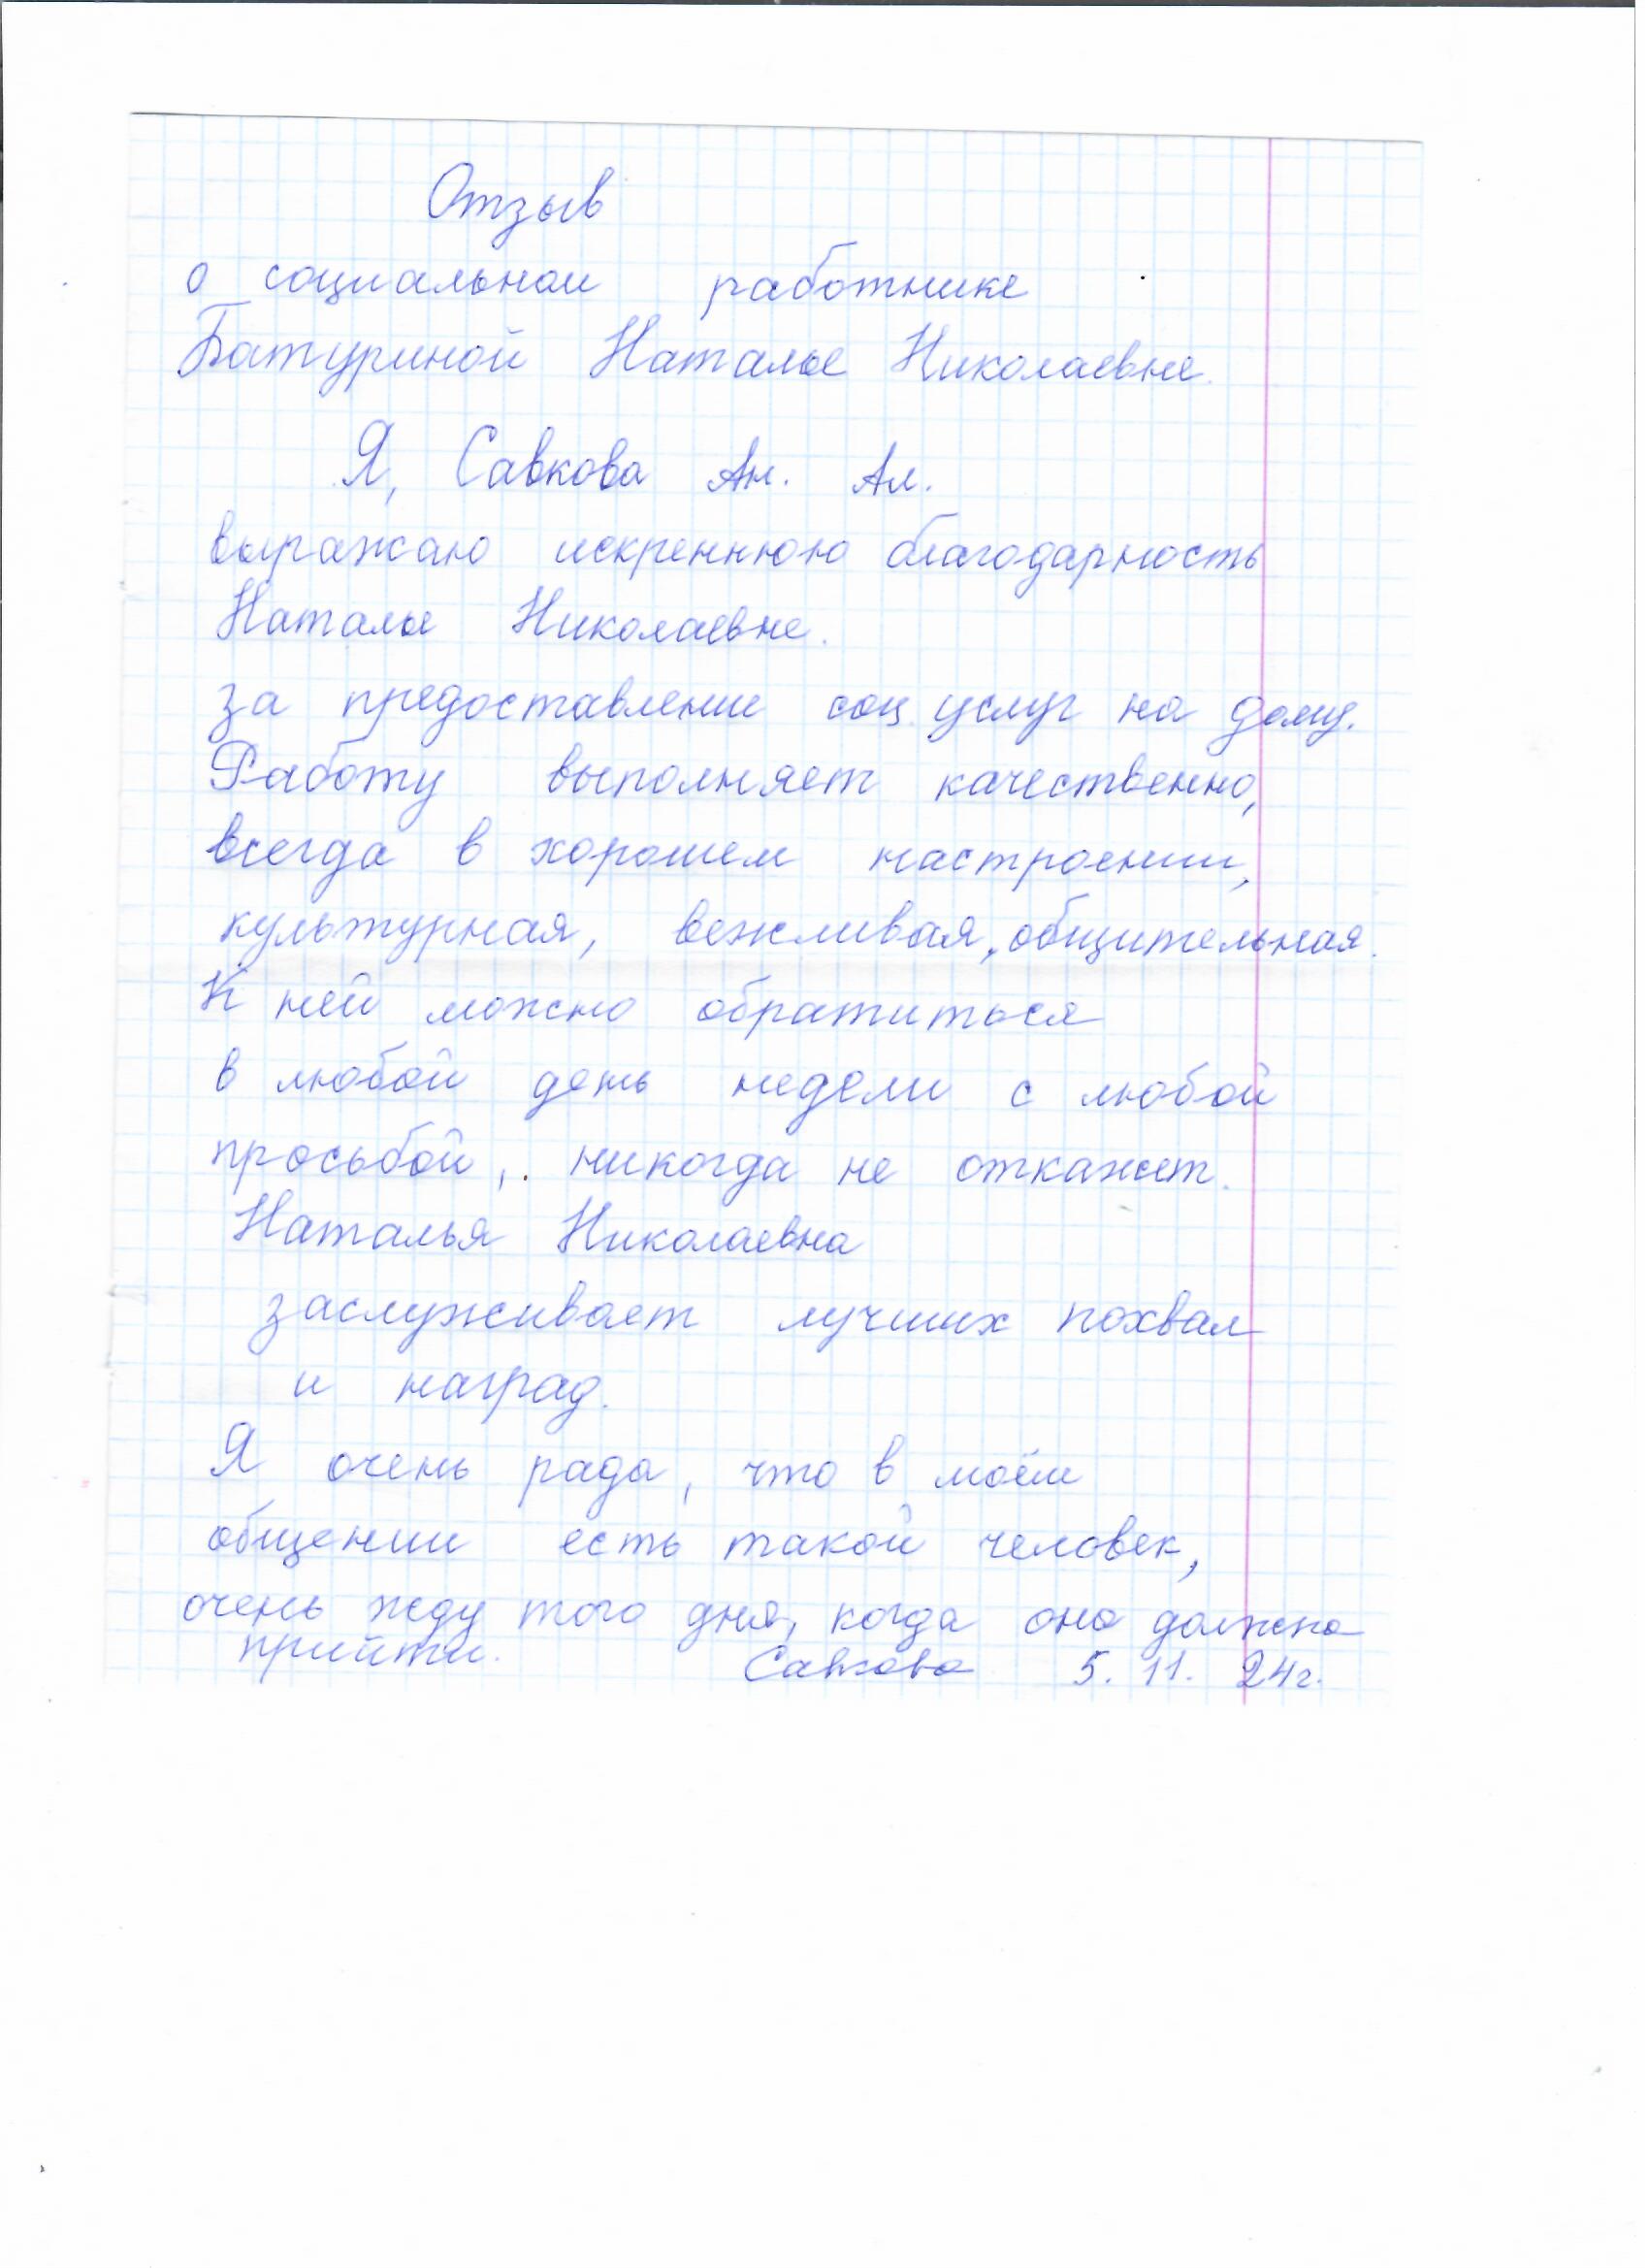 Отзыв
о социальном работнике
Батуриной Наталье Николаевне.
Я, Савкова Ан. Ал.
выражаю искреннюю благодарность
Наталье Николаевне.
за предоставление соц. услуг на дому.
Работу выполняет качественно,
всегда в хорошем настроении,
культурная, вежливая, общительная.
К ней можно обратиться
в любой день недели с любой
просьбой, никогда не откажет.
Наталья Николаевна
заслуживает лучших похвал
и наград.
Я очень рада, что в моём
общении есть такой человек,
очень жду того дня, когда она должна
прийти. Савкова 5. 11. 24г.